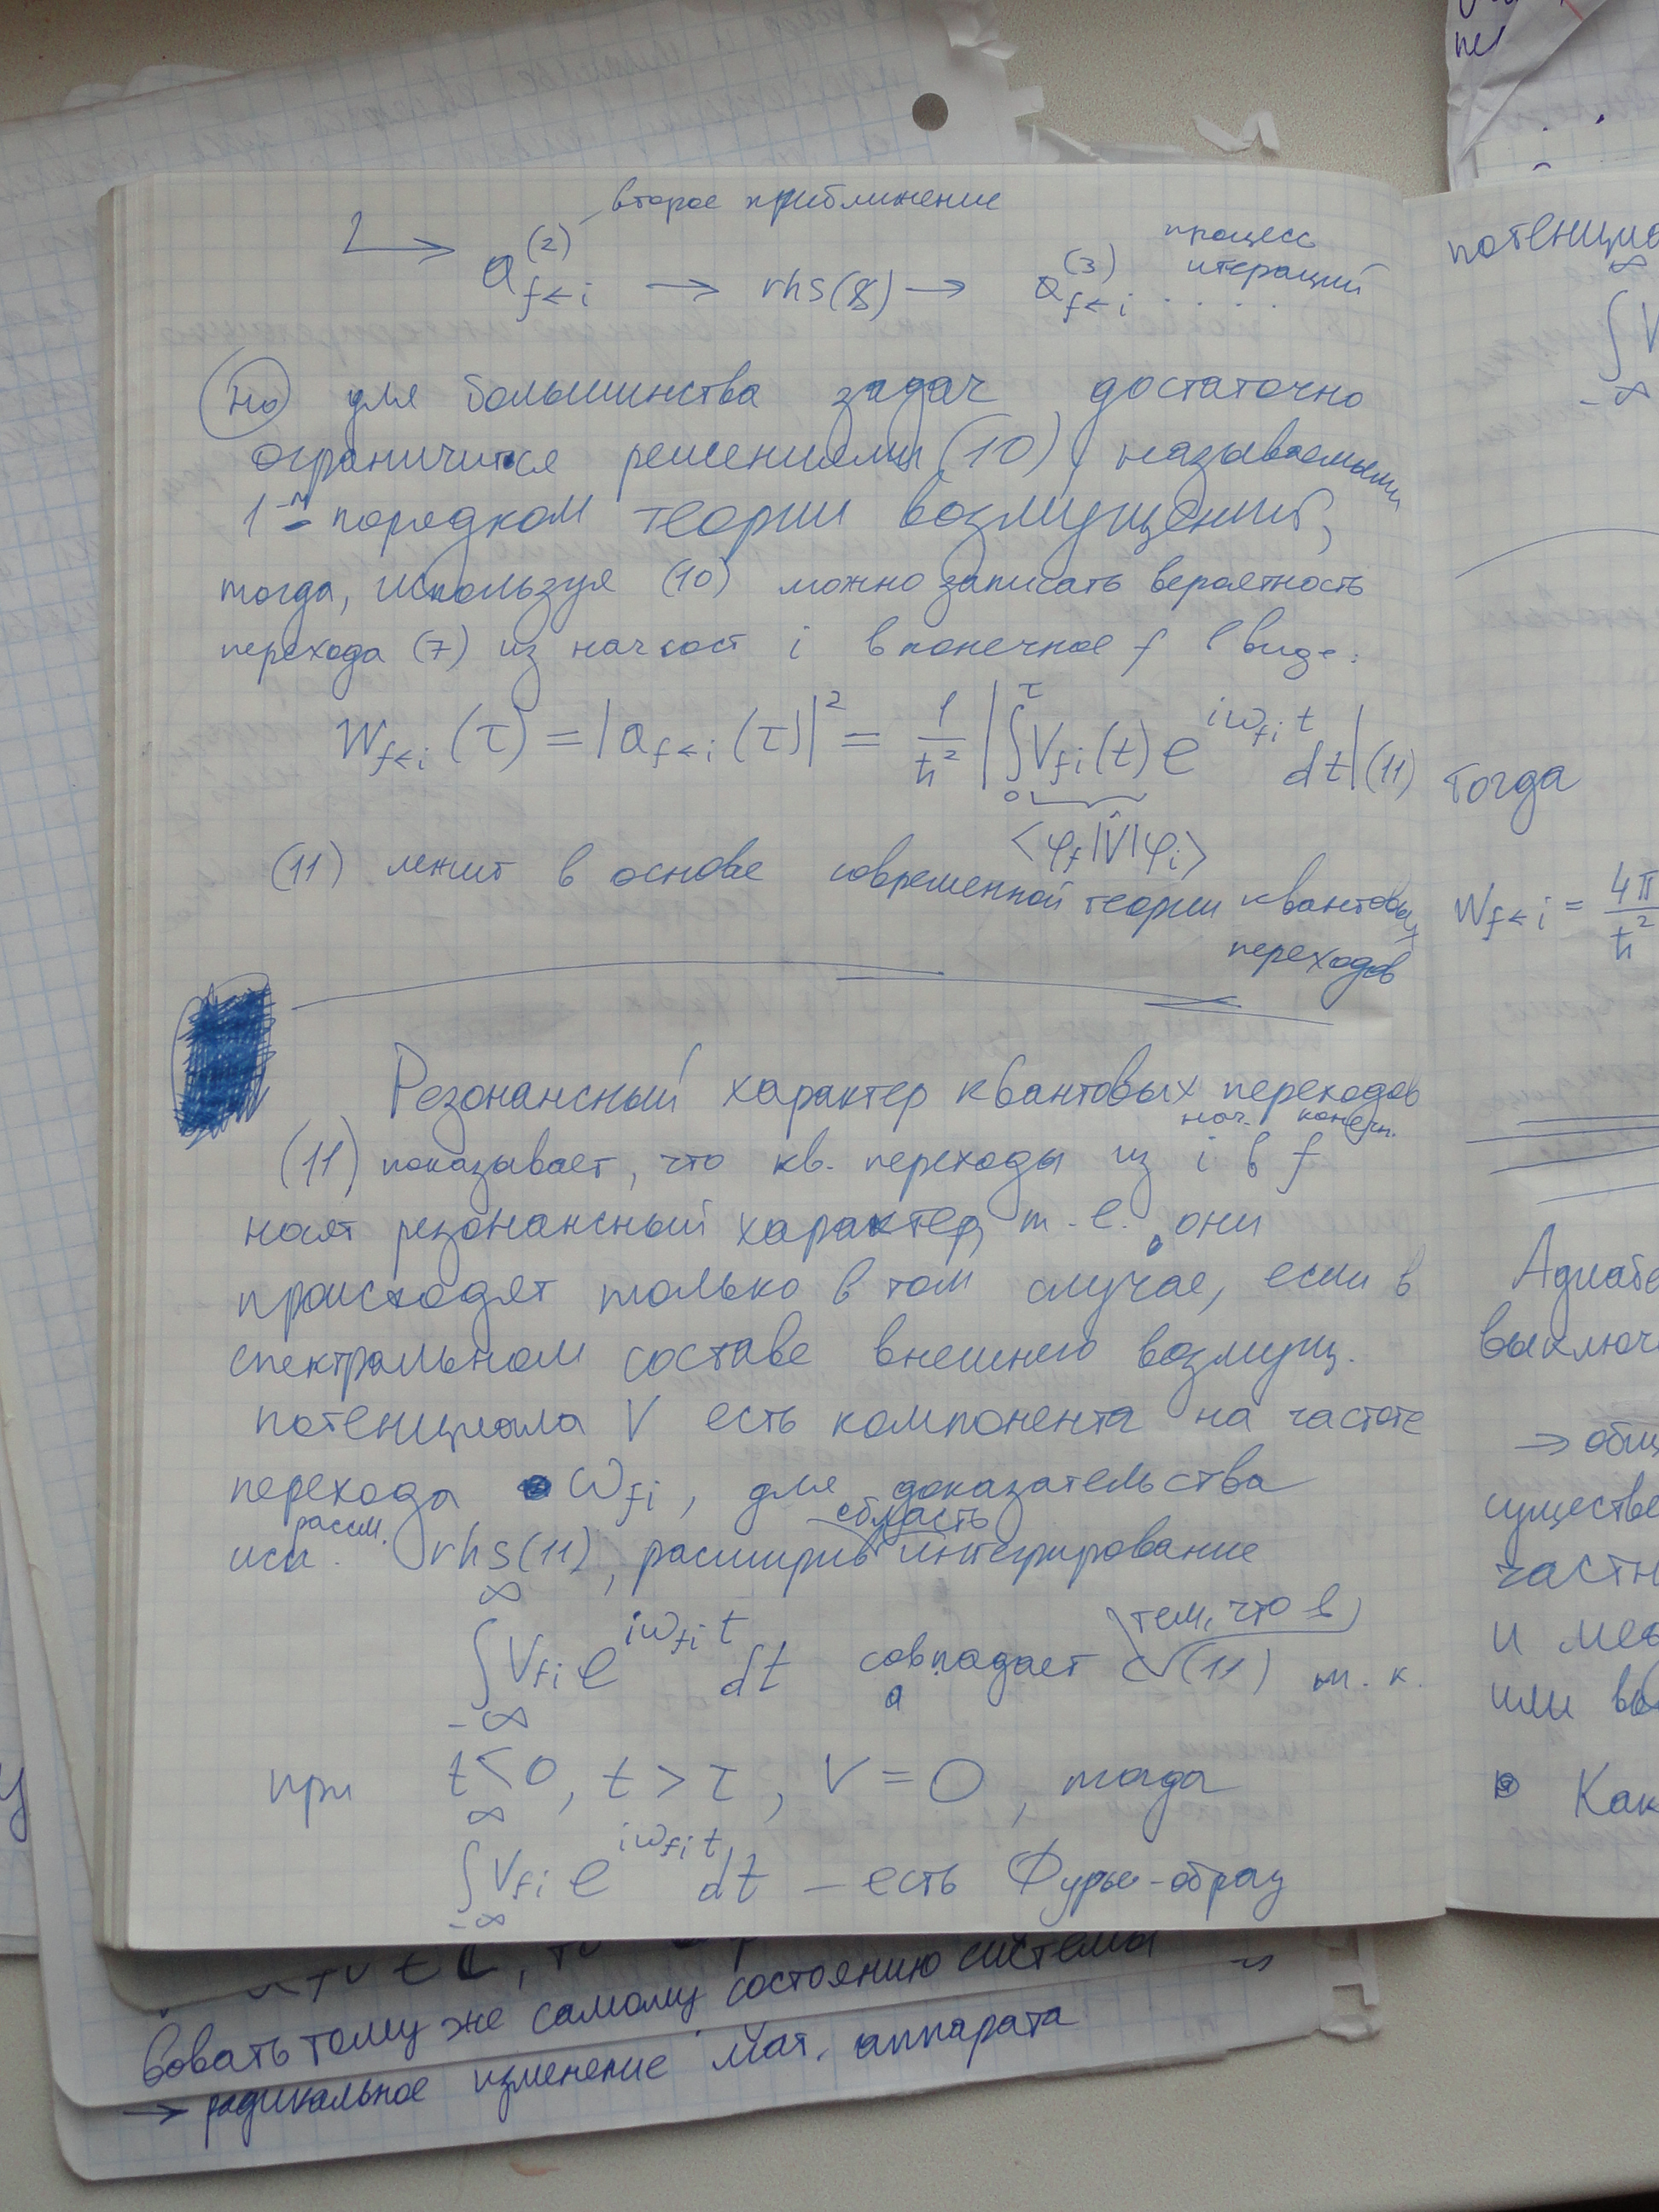 второе приближение
a_{f←i}^{(2)} → rhs(8) → a_{f←i}^{(3)} . . . . процесс итераций
но для большинства задач достаточно
ограничится решениями (10), называемыми
1-м порядком теории возмущений,
тогда, используя (10) можно записать вероятность
перехода (7) из нач сост i в конечное f в виде:
W_{f←i}(τ) = |a_{f←i}(τ)|² = 1/ħ² |∫_0^τ V_{fi}(t) e^{iω_{fi}t} dt| (11)
<φ_f|V̂|φ_i>
(11) лежит в основе современной теории квантовых
переходов
Резонансный характер квантовых переходов
нач. конечн.
(11) показывает, что кв. переходы из i в f
носят резонансный характер, т.е. они
происходят только в том случае, если в
спектральном составе внешнего возмущ.
потенциала V есть компонента на частоте
перехода ω_{fi}, для доказательства
рассм. область
rhs(11), расширив интегрирование
∫_{-∞}^{∞} V_{fi} e^{iω_{fi}t} dt совпадает с (11) т.к.
тем, что в
при t<0, t>τ, V=0, тогда
∫_{-∞}^{∞} V_{fi} e^{iω_{fi}t} dt – есть Фурье-образ
∫_{-∞}^{∞} V
тогда
W_{f←i} = 4π/ħ²
→
или
Как
вовать тому же самому состоянию системы
→ радикальное изменение мат. аппарата